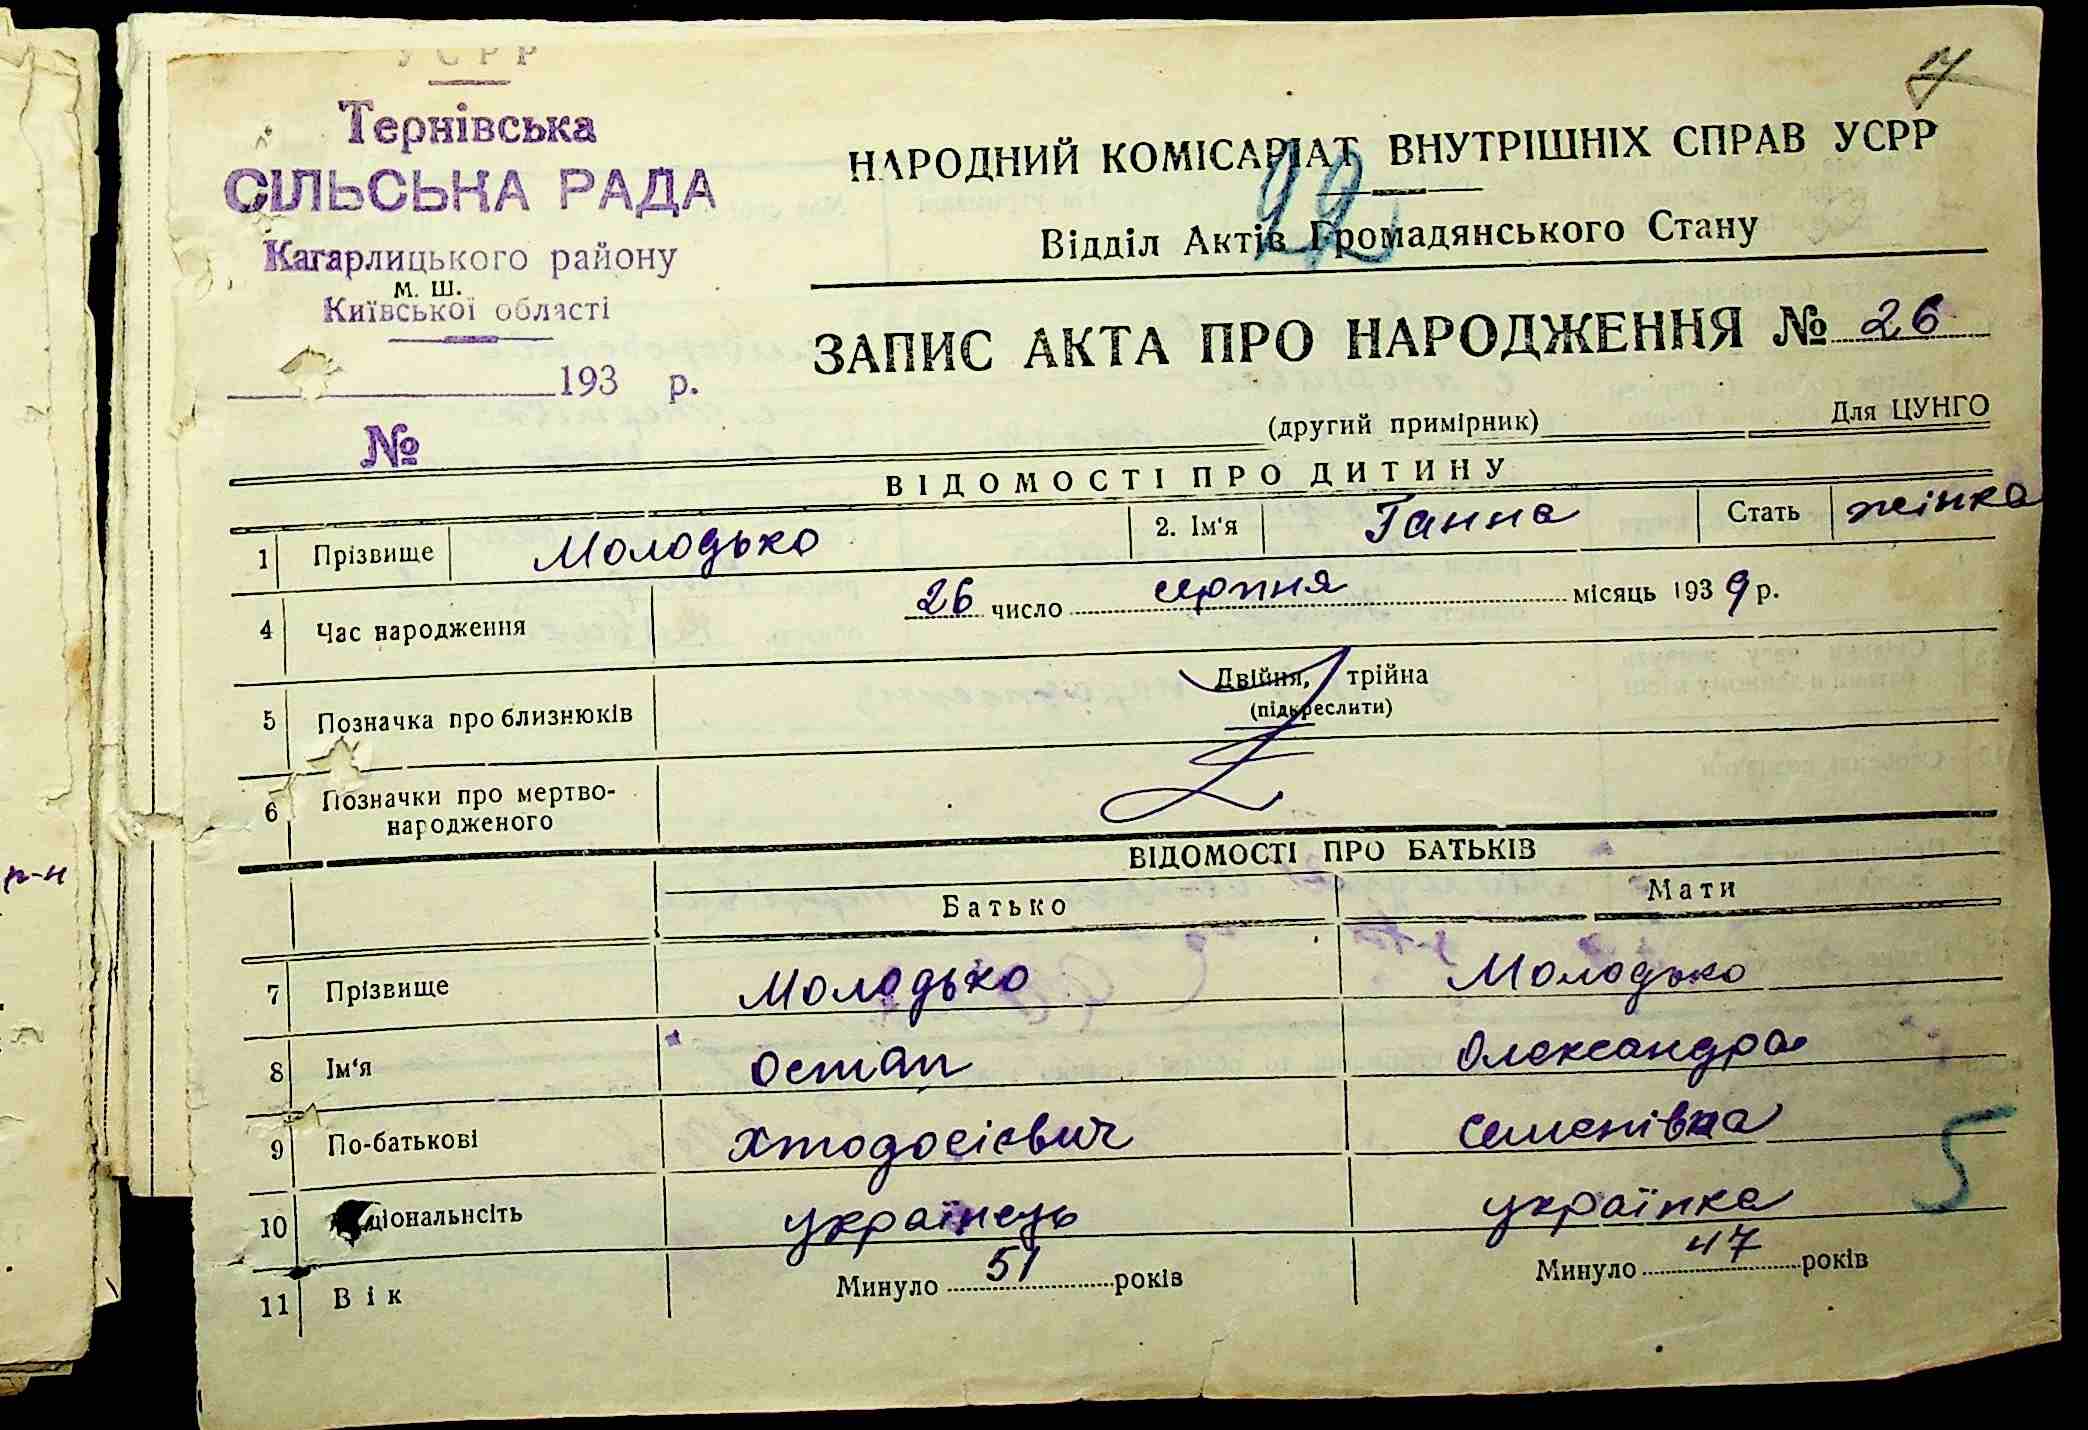 УСРР
Тернівська
СІЛЬСЬКА РАДА
Кагарлицького району
м. ш.
Київської області
193 р.
№
НАРОДНИЙ КОМІСАРІАТ ВНУТРІШНІХ СПРАВ УСРР
22
Відділ Актів Громадянського Стану
ЗАПИС АКТА ПРО НАРОДЖЕННЯ № 26
(другий примірник) Для ЦУНГО
ВІДОМОСТІ ПРО ДИТИНУ
1 Прізвище Молодько 2. Ім'я Ганна Стать жінка
4 Час народження 26 число серпня місяць 1939 р.
5 Позначка про близнюків Двійня, трійна
(підкреслити)
6 Позначки про мертво-
народженого
ВІДОМОСТІ ПРО БАТЬКІВ
Батько Мати
7 Прізвище Молодько Молодько
8 Ім'я Остап Олександра
9 По-батькові Хтодосієвич Семенівна
5
10 ціональнсіть українець українка
11 Вік Минуло 51 років Минуло 47 років
р-н